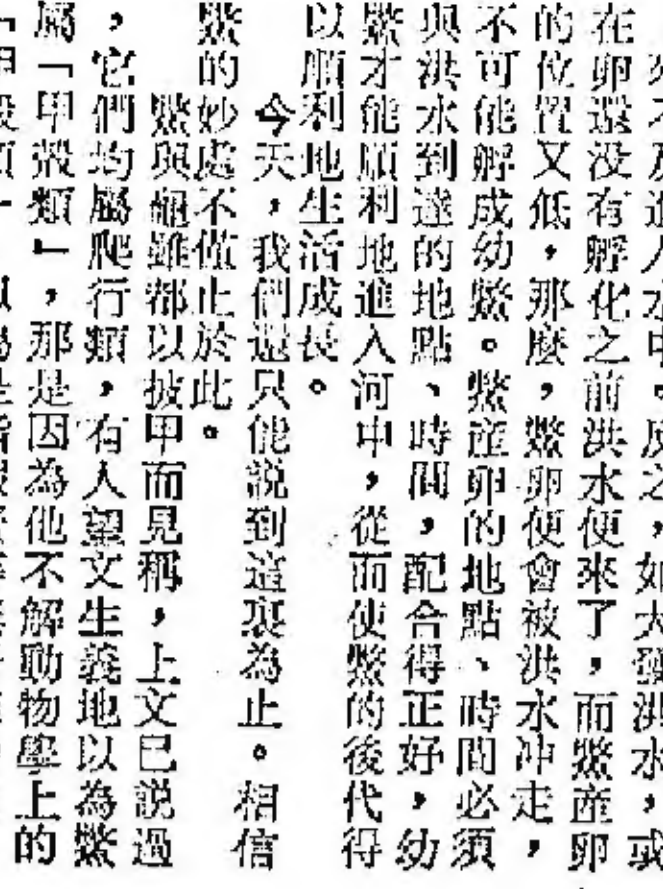 不及進入水中。反之,如大發洪水,或
在卵還没有孵化之前洪水便來了,而鱉産卵
的位置又低,那麽,鱉卵便會被洪水冲走,
不可能孵成幼鱉。鱉産卵的地點、時間必須
與洪水到達的地點、時間,配合得正好,幼
鱉才能順利地進入河中,從而使鱉的後代得
以順利地生活成長。
今天,我們還只能説到這裏為止。相信
鱉的妙處不僅止於此。
鱉與龜雖都以披甲而見稱,上文已説過
,它們均屬爬行類,有人望文生義地以為鱉
屬「甲殼類」,那是因為他不解動物學上的
「甲殼類」